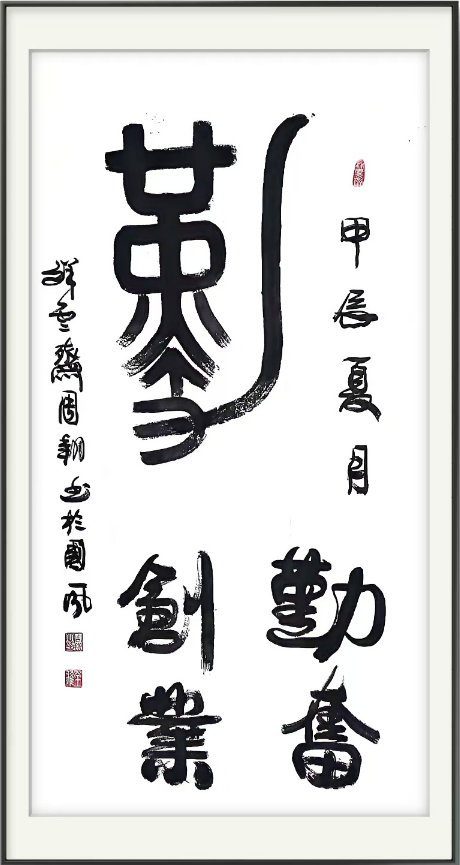 甲辰夏月
勤
勤奮
創業
祥雲齋周翔書於國風